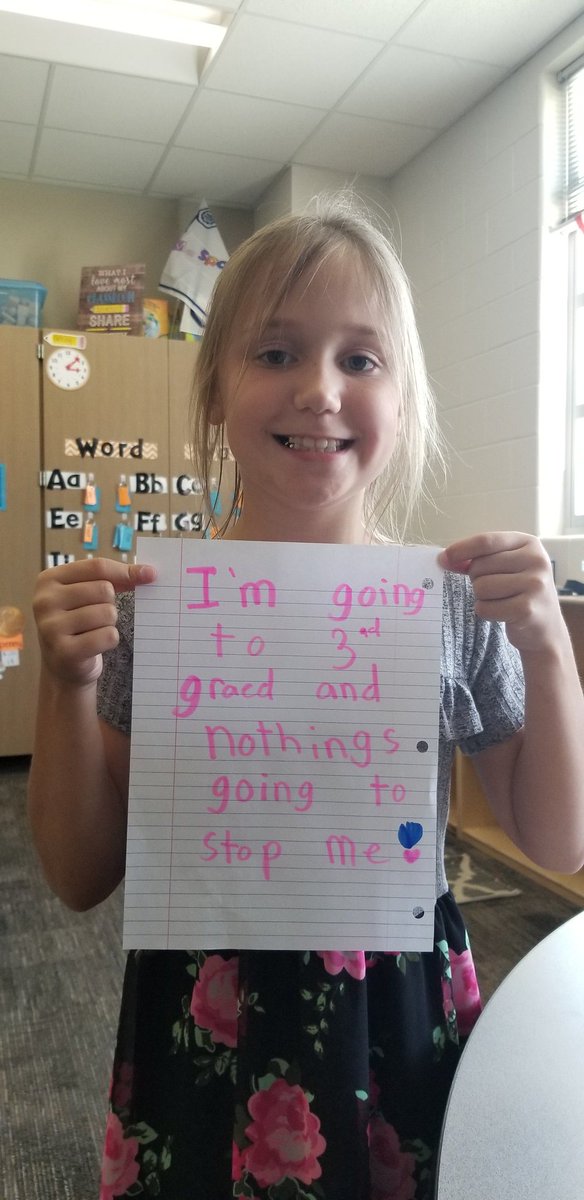 WHAT I
love most
ABOUT MY
CLASSROOM
SHARE
Word
Aa
Bb
Cc
Ee
Ff
Gg
I'm going
to 3rd
graed and
nothings
going to
stop me